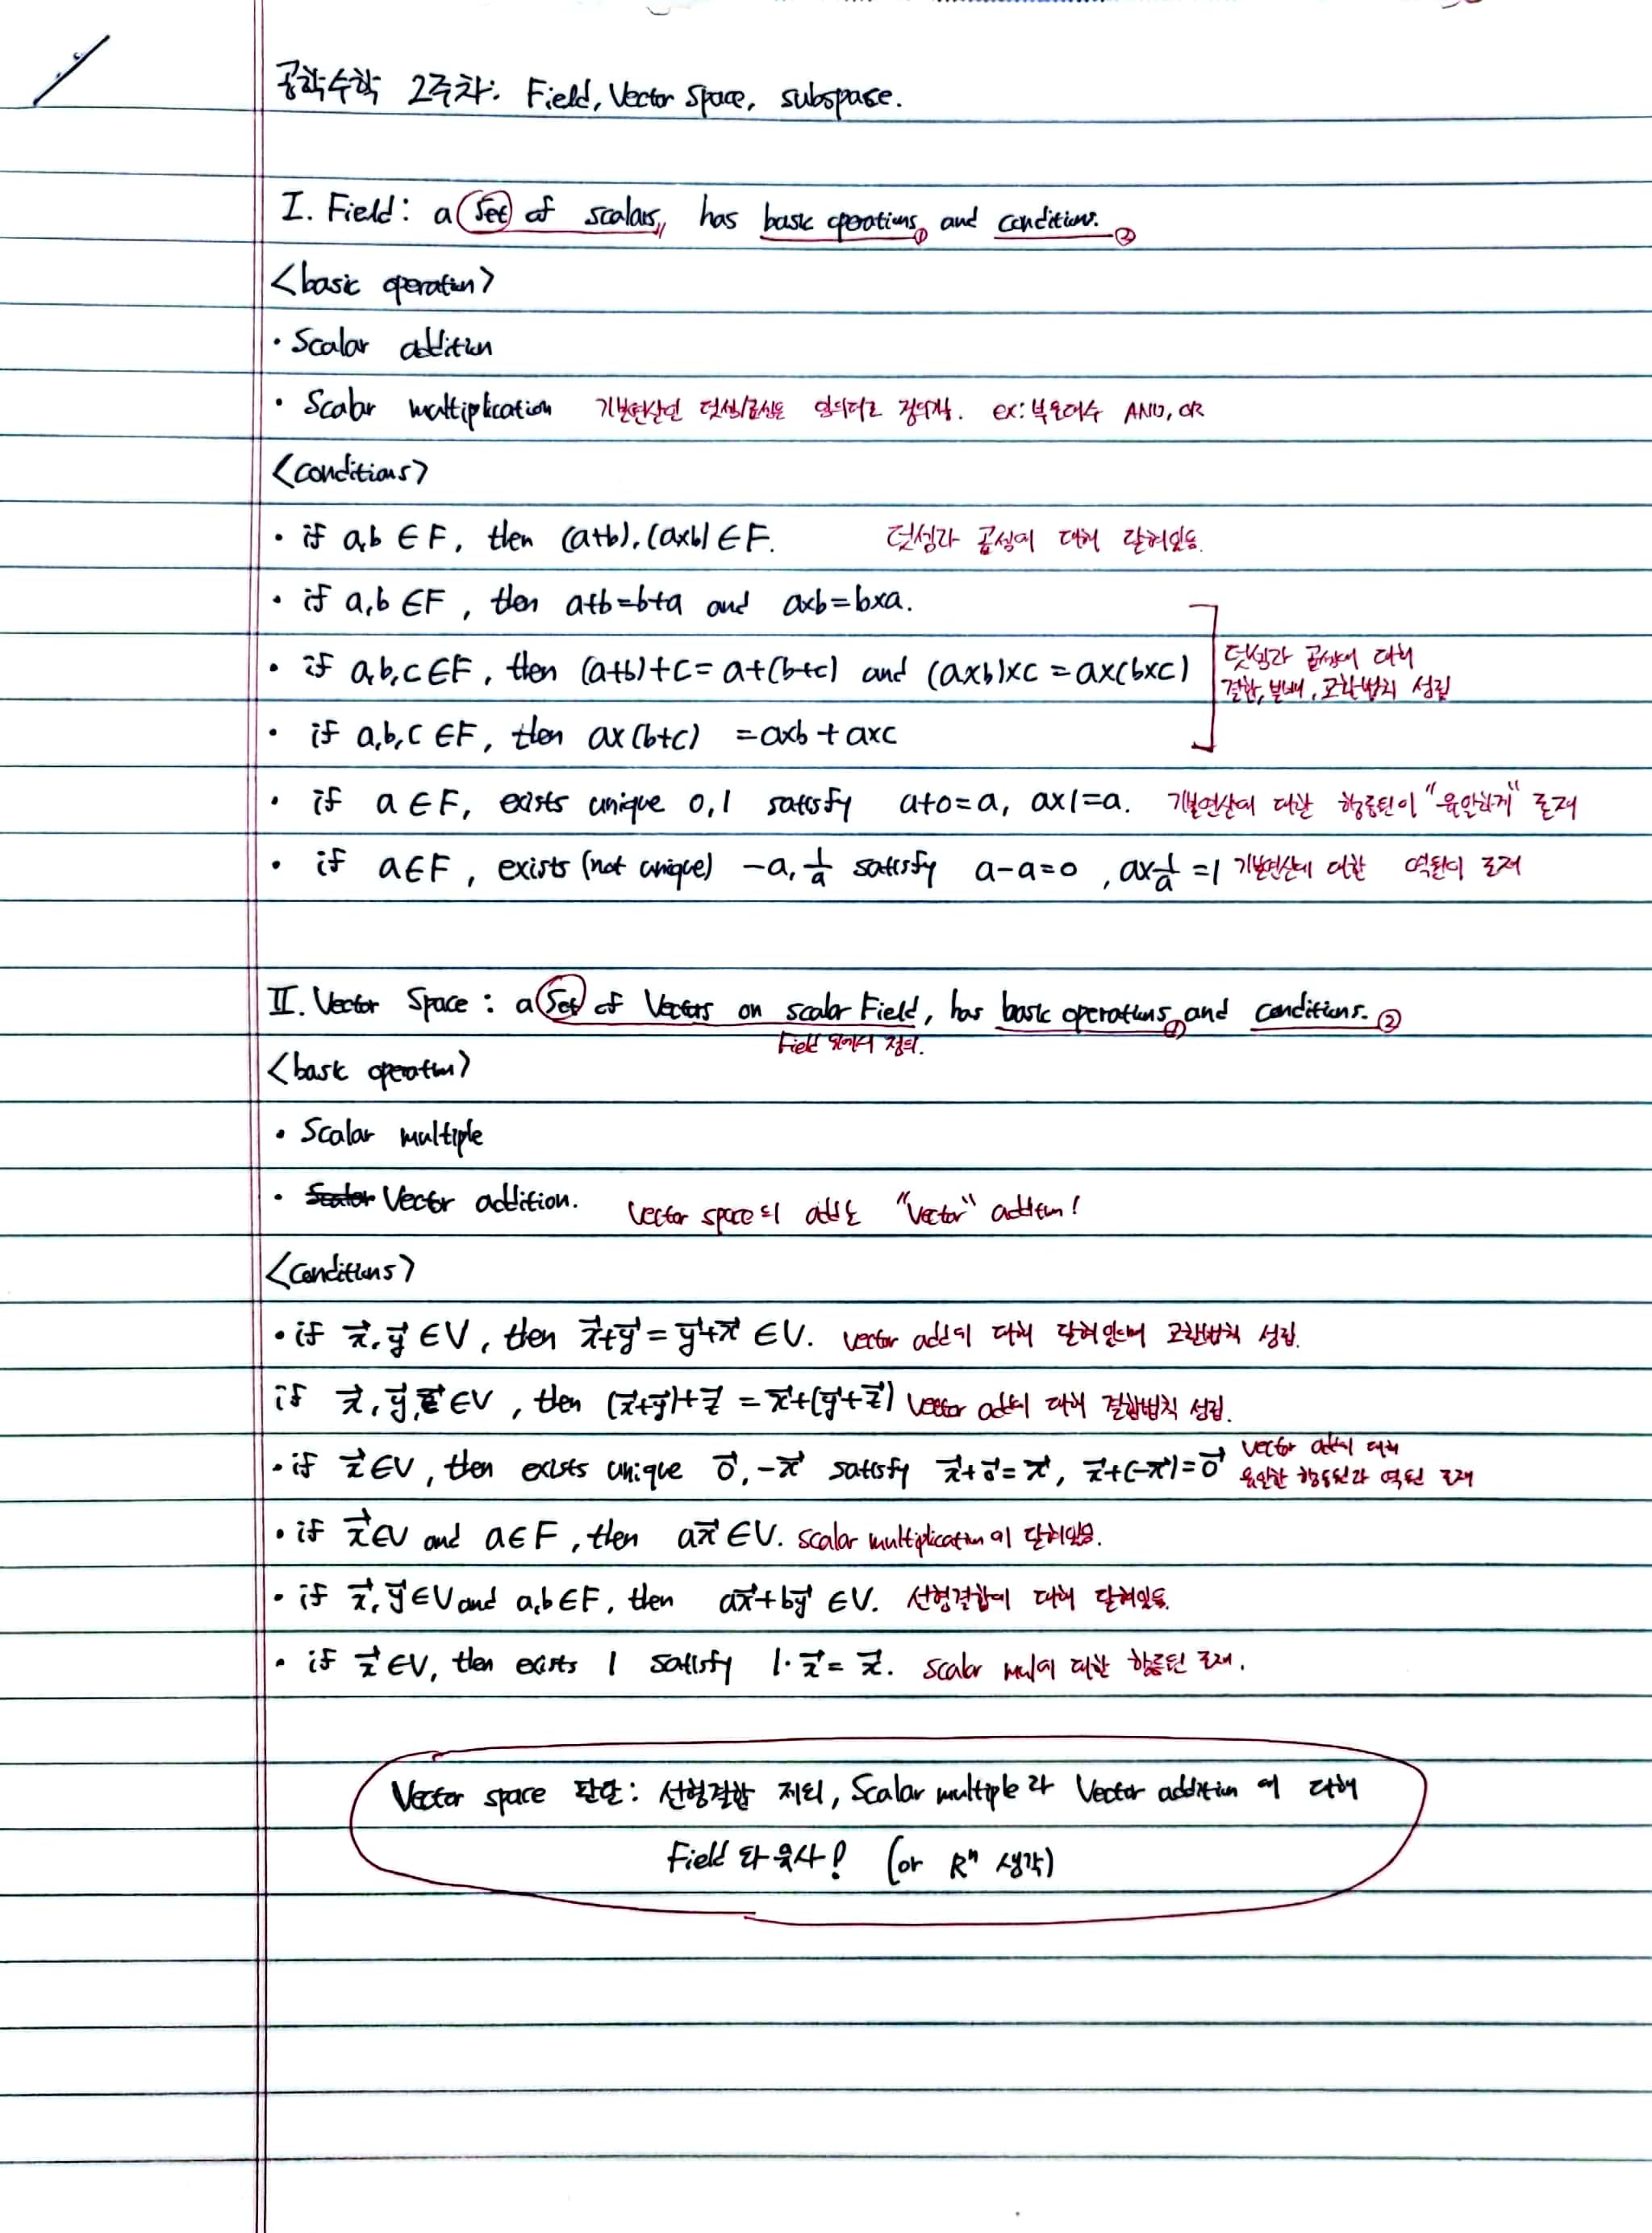 공학수학 2주차: Field, Vector Space, subspase.
I. Field: a set of scalars, has basic operations① and conditions.②
<basic operation>
· Scalar addition
· Scalar multiplication 기본연산인 덧셈/곱셈은 임의대로 정의함. ex: 부울대수 AND, OR
<conditions>
· if a,b ∈ F, then (a+b), (a×b) ∈ F. 덧셈과 곱셈에 대해 닫혀있음.
· if a,b ∈ F, then a+b=b+a and a×b=b×a.
· if a,b,c ∈ F, then (a+b)+c = a+(b+c) and (a×b)×c = a×(b×c) 덧셈과 곱셈에 대해
결합, 분배, 교환법칙 성립
· if a,b,c ∈ F, then a×(b+c) = a×b + a×c
· if a ∈ F, exists unique 0,1 satisfy a+0=a, a×1=a. 기본연산에 대한 항등원이 "유일하게" 존재
· if a ∈ F, exists (not unique) -a, 1/a satisfy a-a=0, a×1/a=1 기본연산에 대한 역원이 존재
II. Vector Space: a set of Vectors on scalar Field, has basic operations① and conditions.②
Field 위에서 정의.
<basic operation>
· Scalar multiple
· Vector addition. Vector space의 add는 "Vector" addition!
<conditions>
· if x⃗, y⃗ ∈ V, then x⃗+y⃗ = y⃗+x⃗ ∈ V. vector add에 대해 닫혀있으며 교환법칙 성립.
if x⃗, y⃗, z⃗ ∈ V, then (x⃗+y⃗)+z⃗ = x⃗+(y⃗+z⃗) Vector add에 대해 결합법칙 성립.
· if x⃗ ∈ V, then exists unique 0⃗, -x⃗ satisfy x⃗+0⃗=x⃗, x⃗+(-x⃗)=0⃗ Vector add에 대해
유일한 항등원과 역원 존재
· if x⃗ ∈ V and a ∈ F, then ax⃗ ∈ V. scalar multiplication에 닫혀있음.
· if x⃗, y⃗ ∈ V and a,b ∈ F, then ax⃗+by⃗ ∈ V. 선형결합에 대해 닫혀있음.
· if x⃗ ∈ V, then exists 1 satisfy 1·x⃗ = x⃗. scalar mul에 대한 항등원 존재.
Vector space 판단: 선형결합 제외, Scalar multiple과 Vector addition에 대해
Field와 유사! (or Rⁿ 생각)